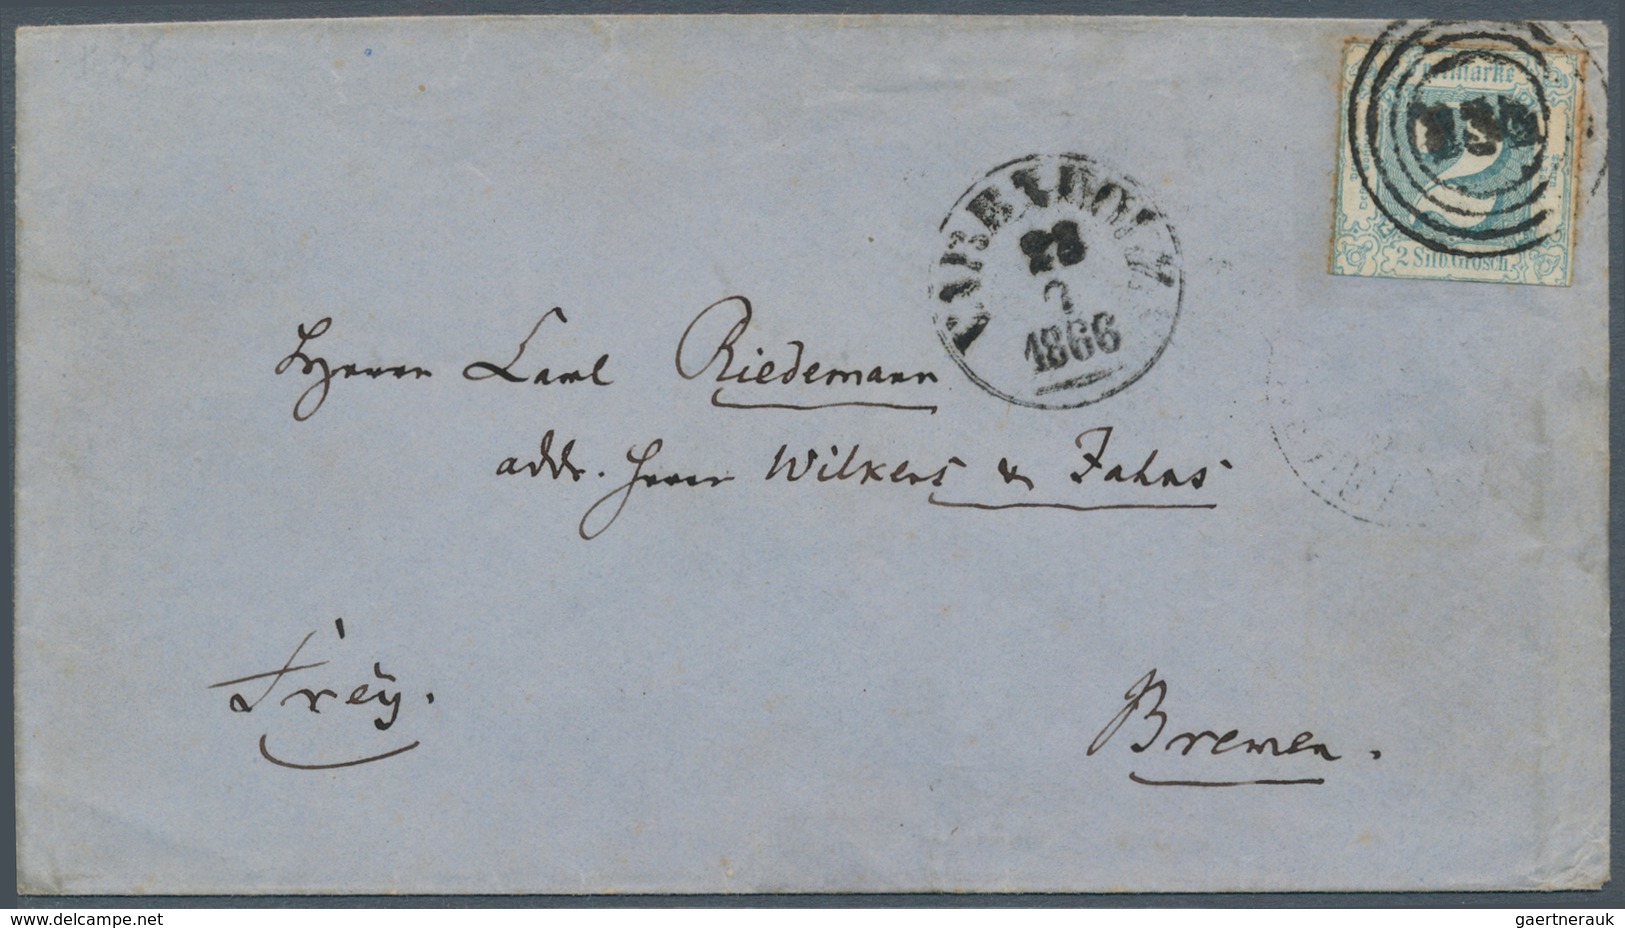 Postmarke
2 Silb Grosch.
VARENHOLZ
23
7
1866
Herrn Carl Riedemann
addr. Herrn Wilkens & Jahns
Frey.
Bremen.
www.delcampe.net
gaertnerauk